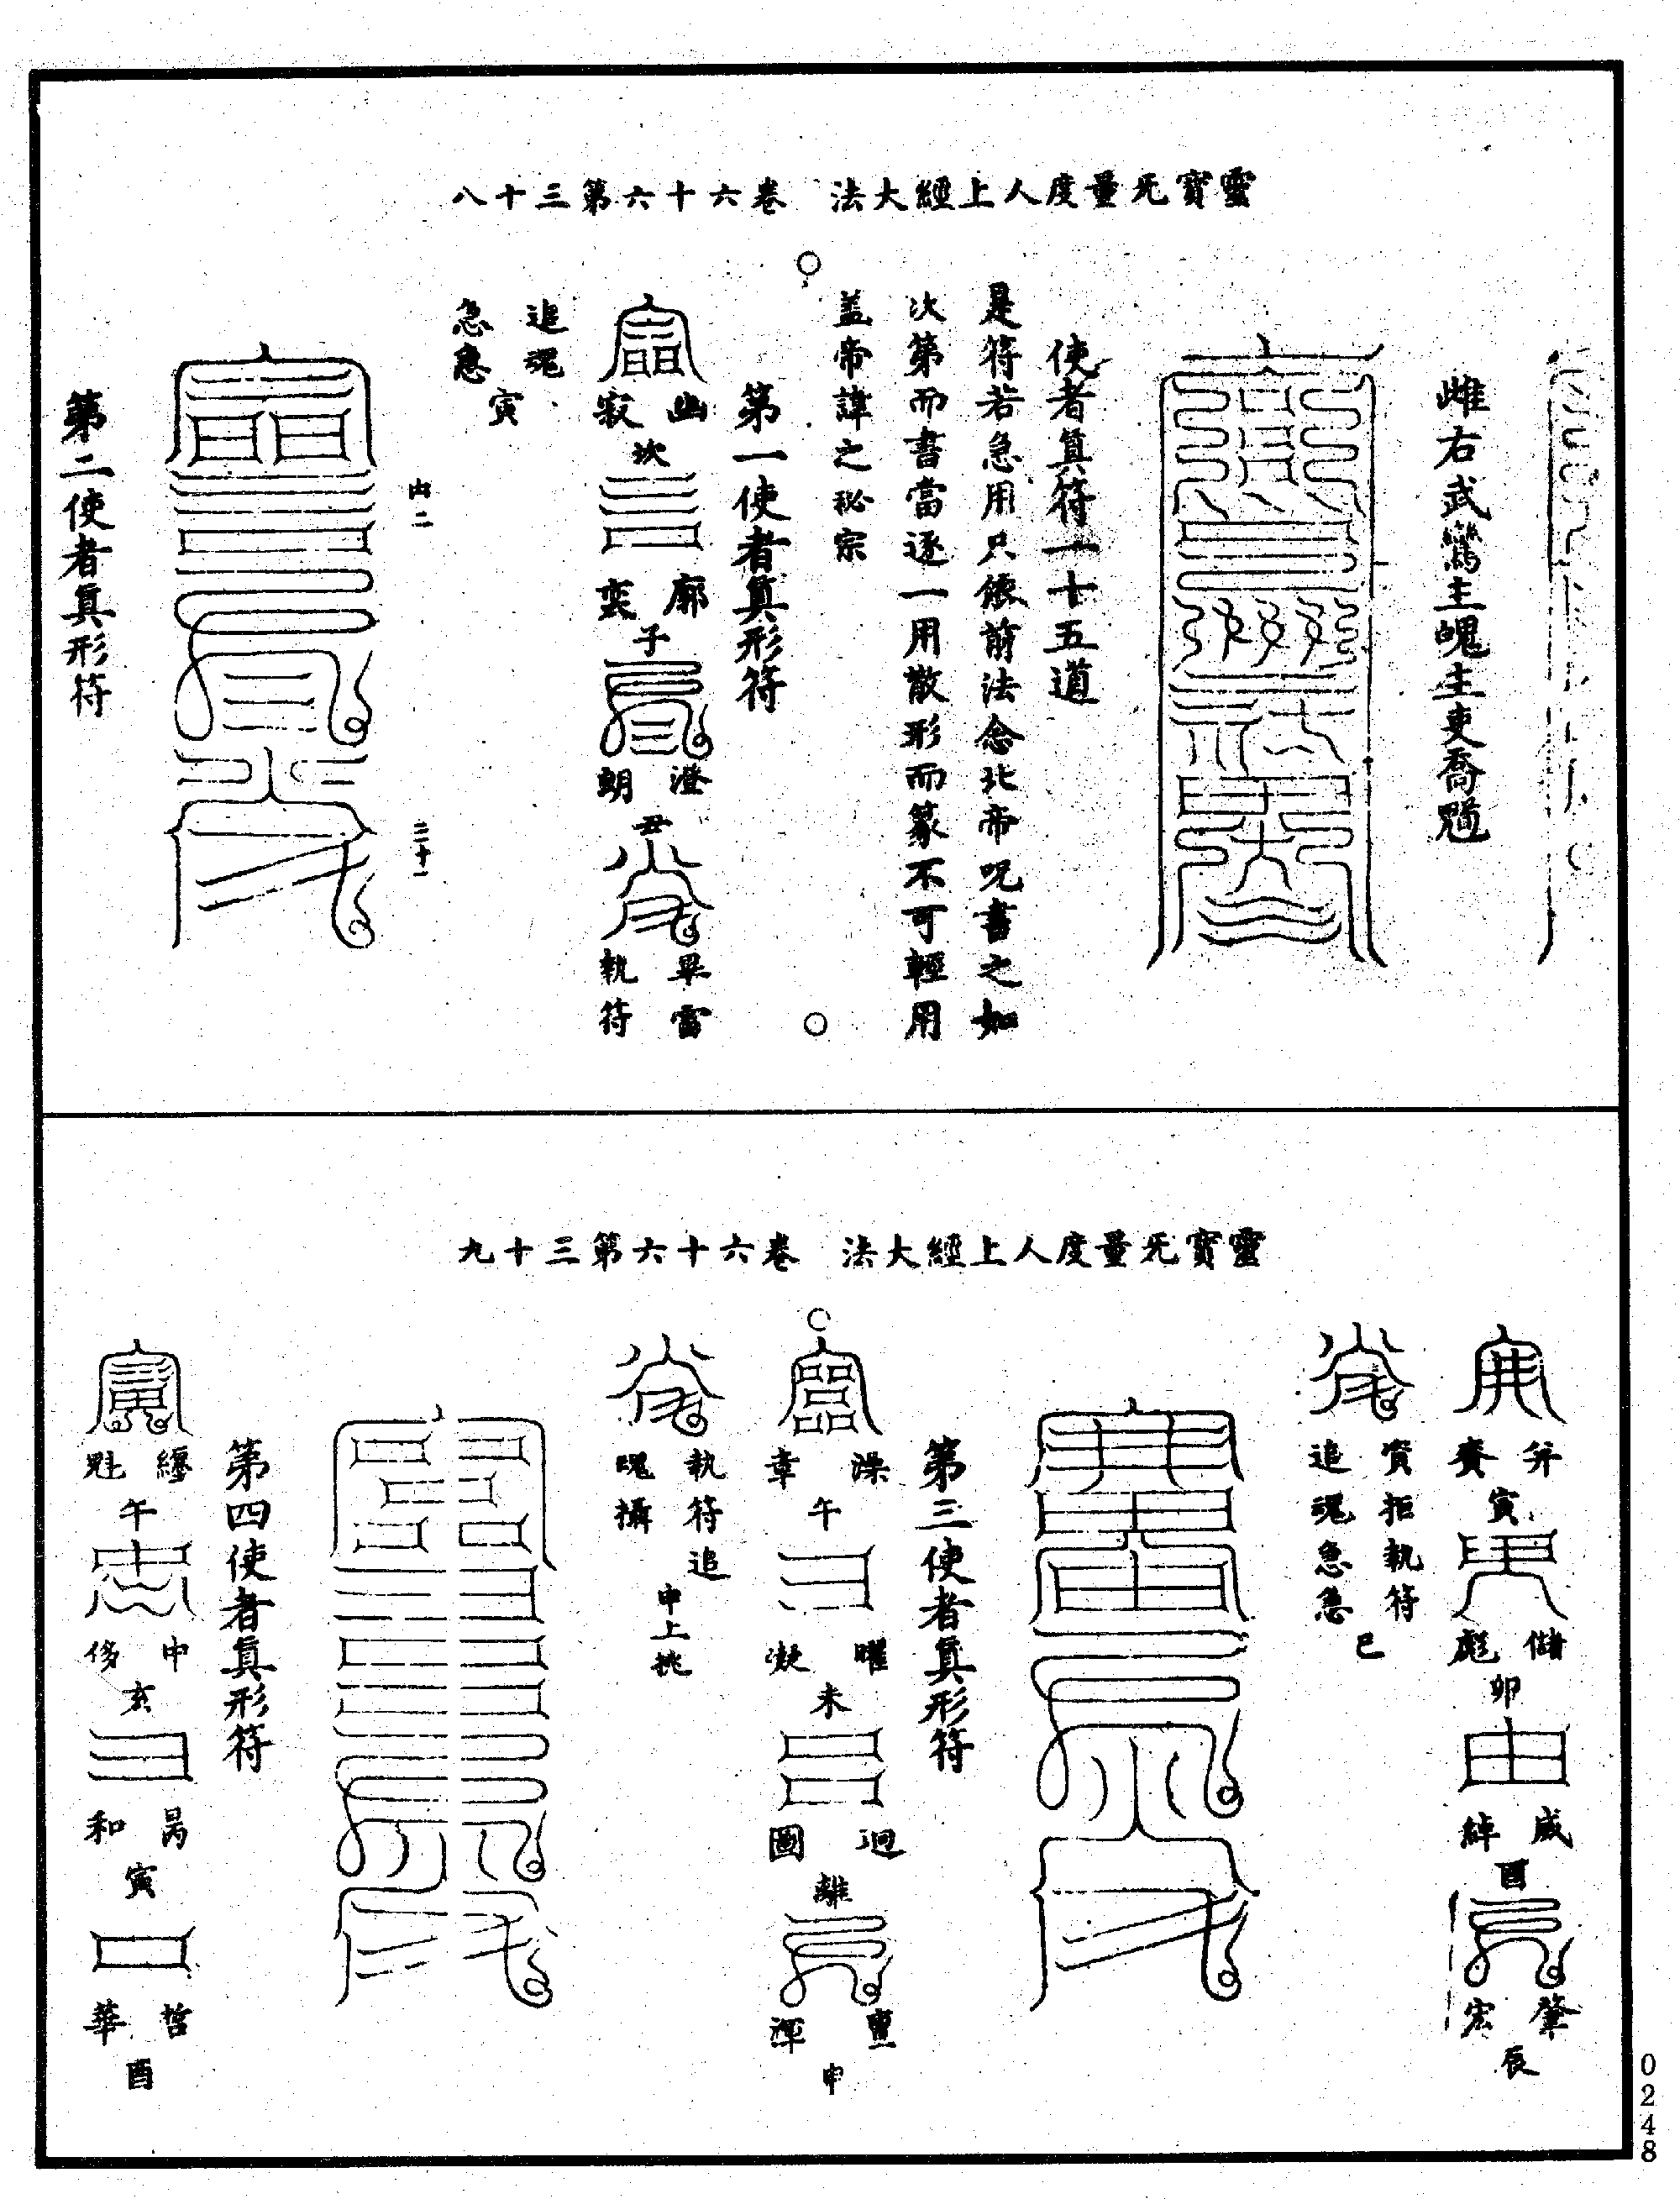 靈寶无量度人上經大法　卷六十六第三十八
雌右武鸞主魄主吏喬
使者真符一十五道
是符若急用只依前法念北帝呪書之如
次第而書當逐一用散形而篆不可輕用
蓋帝諱之秘宗
第一使者真形符
幽寂
坎
廓
子
澄朗
丑
畢
執符
追魂
急急
寅
二十一
第二使者真形符
靈寶无量度人上經大法　卷六十六第三十九
寅
儲彪
卯
威綽
酉
肇宏
辰
執符
追魂急急
巳
第三使者真形符
澡章
午
曜凝
未
迴圖
離
渾
申
執符追
魄攝
申上挑
第四使者真形符
纏魁
午
申侈
亥
和
寅
哲華
酉
0248